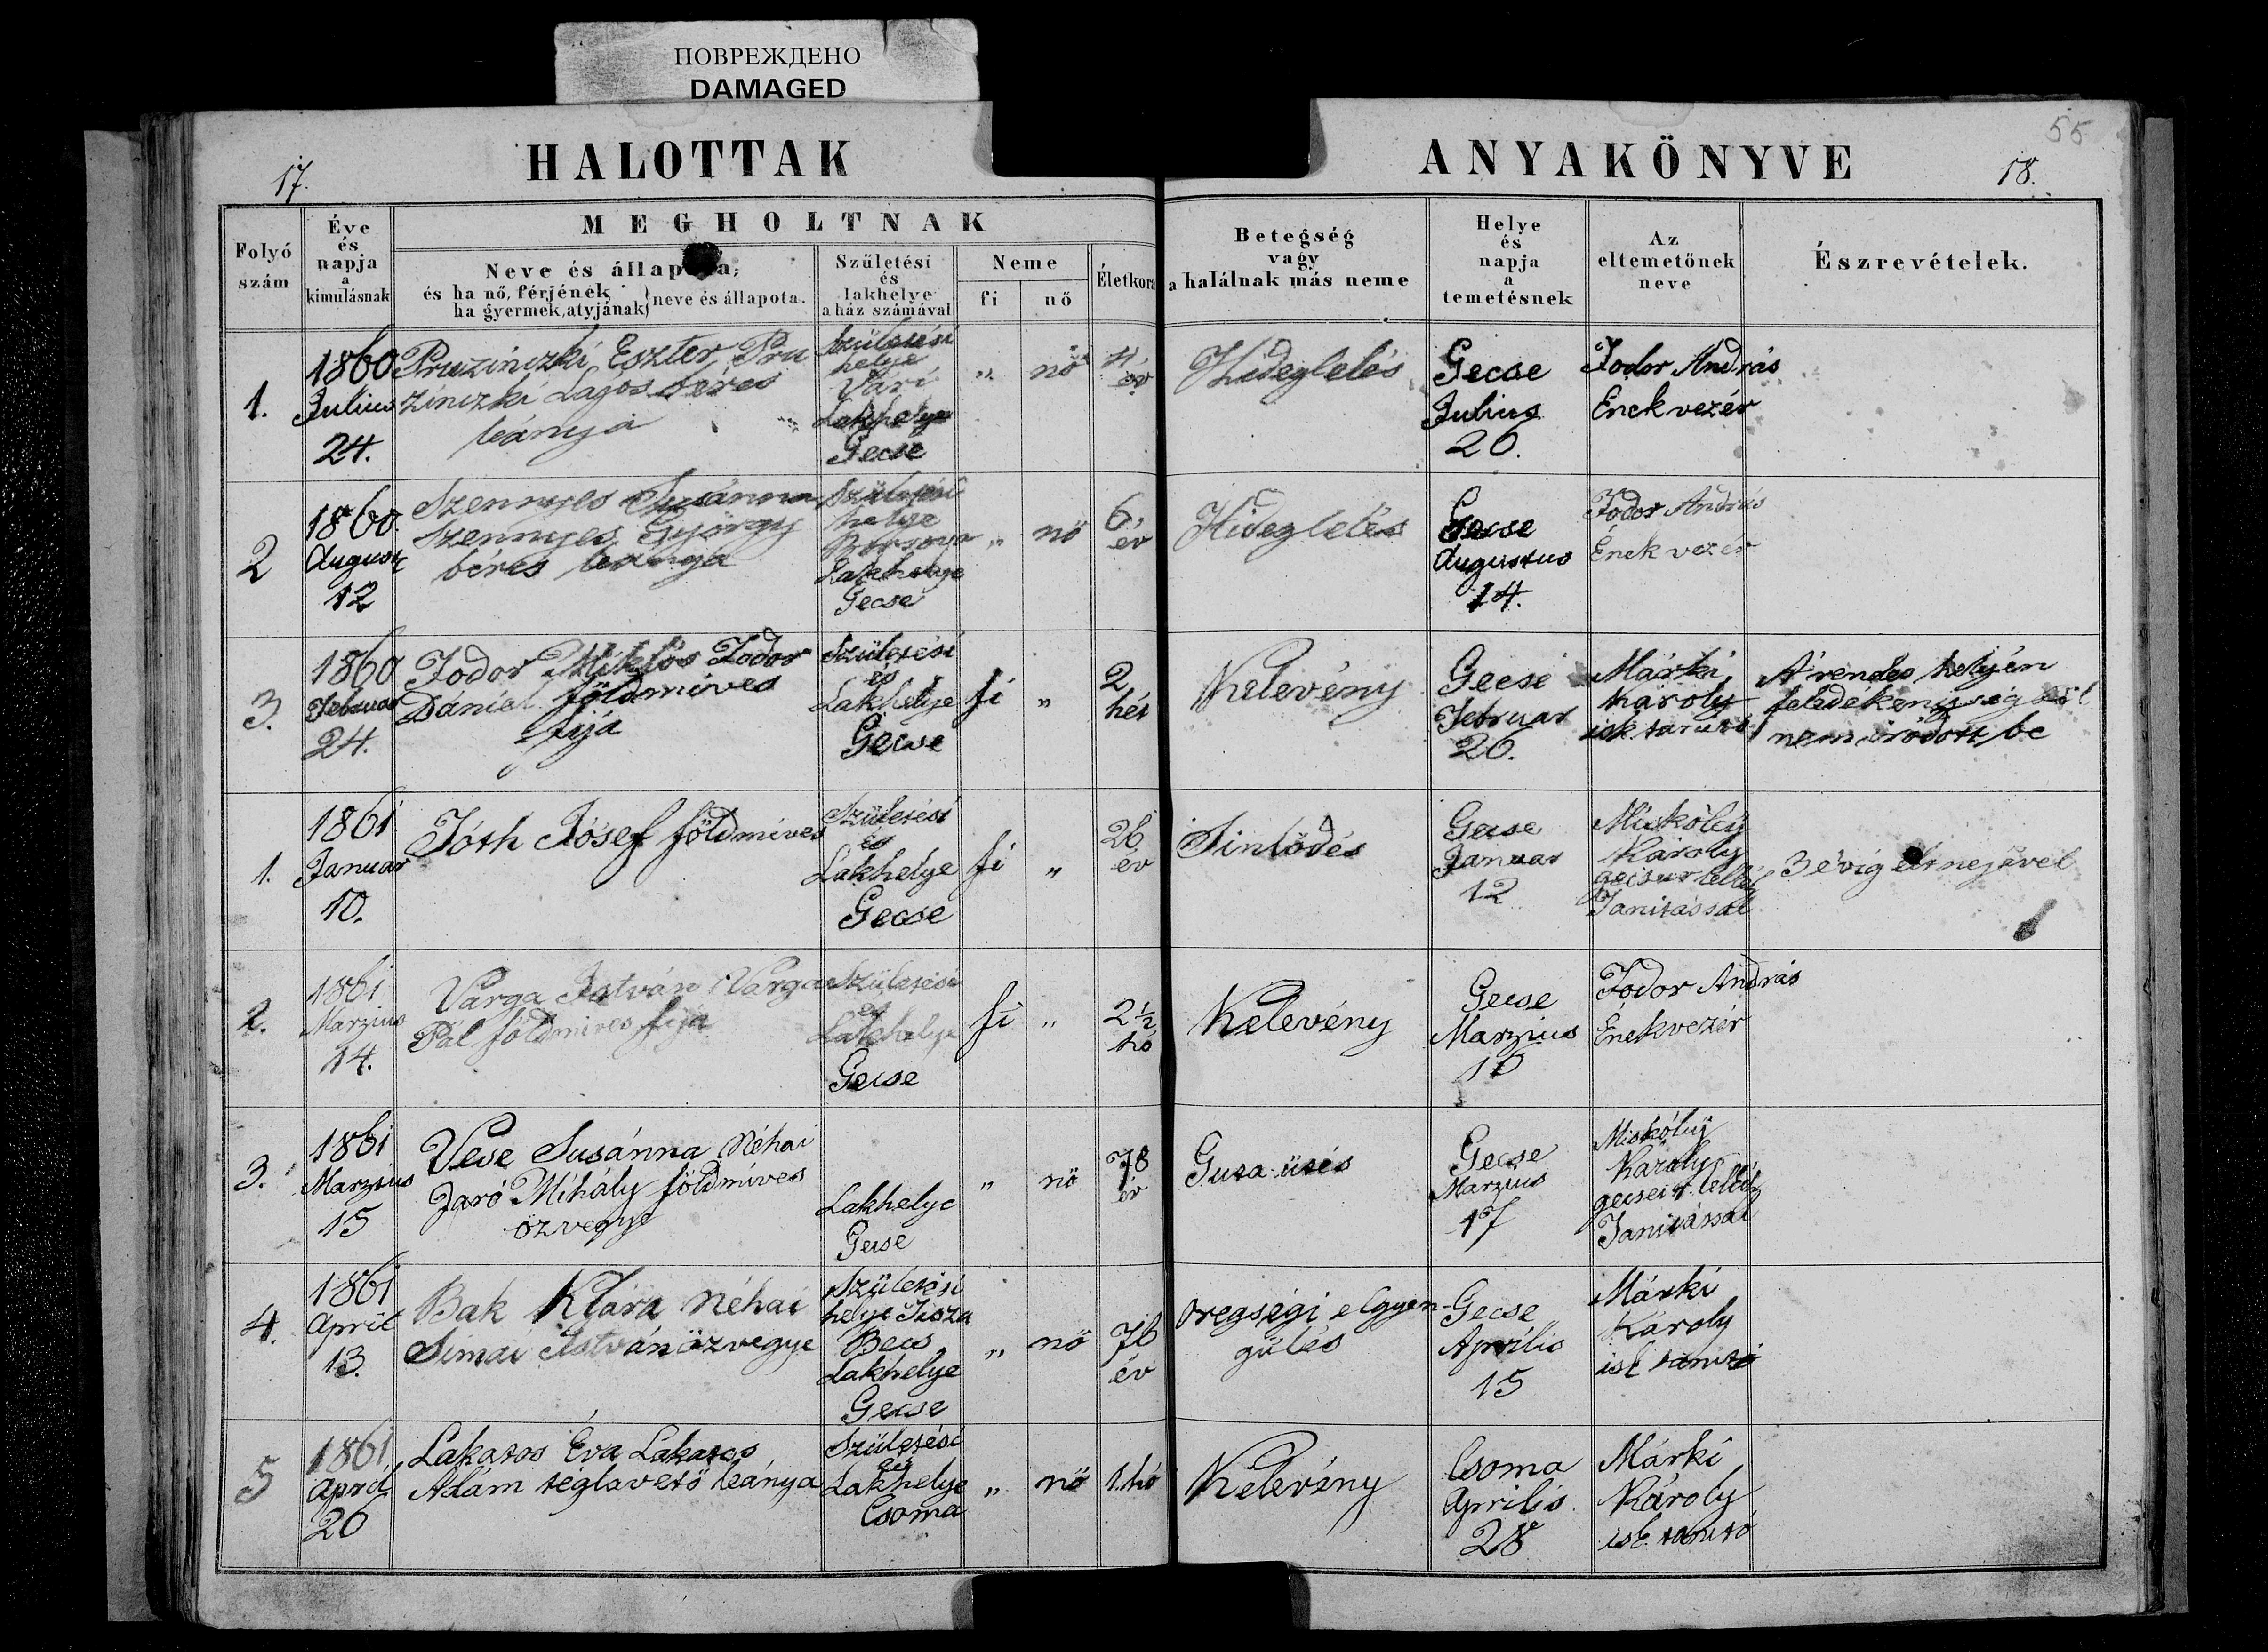 ПОВРЕЖДЕНО
DAMAGED
55
17.
HALOTTAK
ANYAKÖNYVE
18.
Folyó
szám
Éve
és
napja
a
kimulásnak
MEGHOLTNAK
Neve és állapota;
és ha nő, férjének
ha gyermek, atyjának
neve és állapota.
Születési
és
lakhelye
a ház számával
Neme
fi
nő
Életkora
Betegség
vagy
a halálnak más neme
Helye
és
napja
a
temetésnek
Az
eltemetőnek
neve
Észrevételek.
1.
1860
Julius
24.
Pruzinczki Eszter, Pru
zinczki Lajos béres
leánya
Születési
helye
Vári
Lakhelye
Gecse
„
nő
év
Hideglelés
Gecse
Julius
26.
Fodor András
Enekvezér
2
1860
August
12
Szennyes Susánna
Szennyes György
béres leánya
Születési
helye
Borsova
Lakhelye
Gecse
„
nő
6.
év
Hideglelés
Gecse
Augustus
14.
Fodor András
Énekvezér
3.
1860
Februar
24.
Fodor Miklós Fodor
Dániel földmives
fija
Születési
és
Lakhelye
Gecse
fi
„
2
hét
Kelevény
Gecse
Februar
26.
Márki
Károly
isk tanitó
A rendes helyén
feledékenység ből
nem iródott be
1.
1861
Januar
10.
Tóth Jósef földmives
Születési
és
Lakhelye
Gecse
fi
„
26
év
Sinlődés
Gecse
Januar
12
Miskólczy
Károly
gecsei r. lelkész
Tanitással
3 évig élt nejével
2.
1861
Marzius
14.
Varga István Varga
Pál földmives fija
Születési
és
Lakhelye
Gecse
fi
„
2 1/2
hó
Kelevény
Gecse
Marzius
16
Fodor András
Enekvezér
3.
1861
Marzius
15
Vese Susánna Néhai
Jaró Mihály földmives
özvegye
Lakhelye
Gecse
„
nő
78
év
Guta ütés
Gecse
Marzius
17
Miskólczy
Károly
gecsei r. lelkész
Tanitással
4.
1861
April
13.
Bak Klára Néhai
Simai István özvegye
Születési
helye Tisza
Becs
Lakhelye
Gecse
„
nő
76
év
öregségi elgyen
gülés
Gecse
Aprilis
15
Márki
Károly
isk tanitó
5
1861
April
26
Lakatos Éva Lakatos
Ádám téglavető leánya
Születési
és
Lakhelye
Csoma
„
nő
1. hó
Kelevény
Csoma
Aprilis
28
Márki
Károly
isk. tanitó